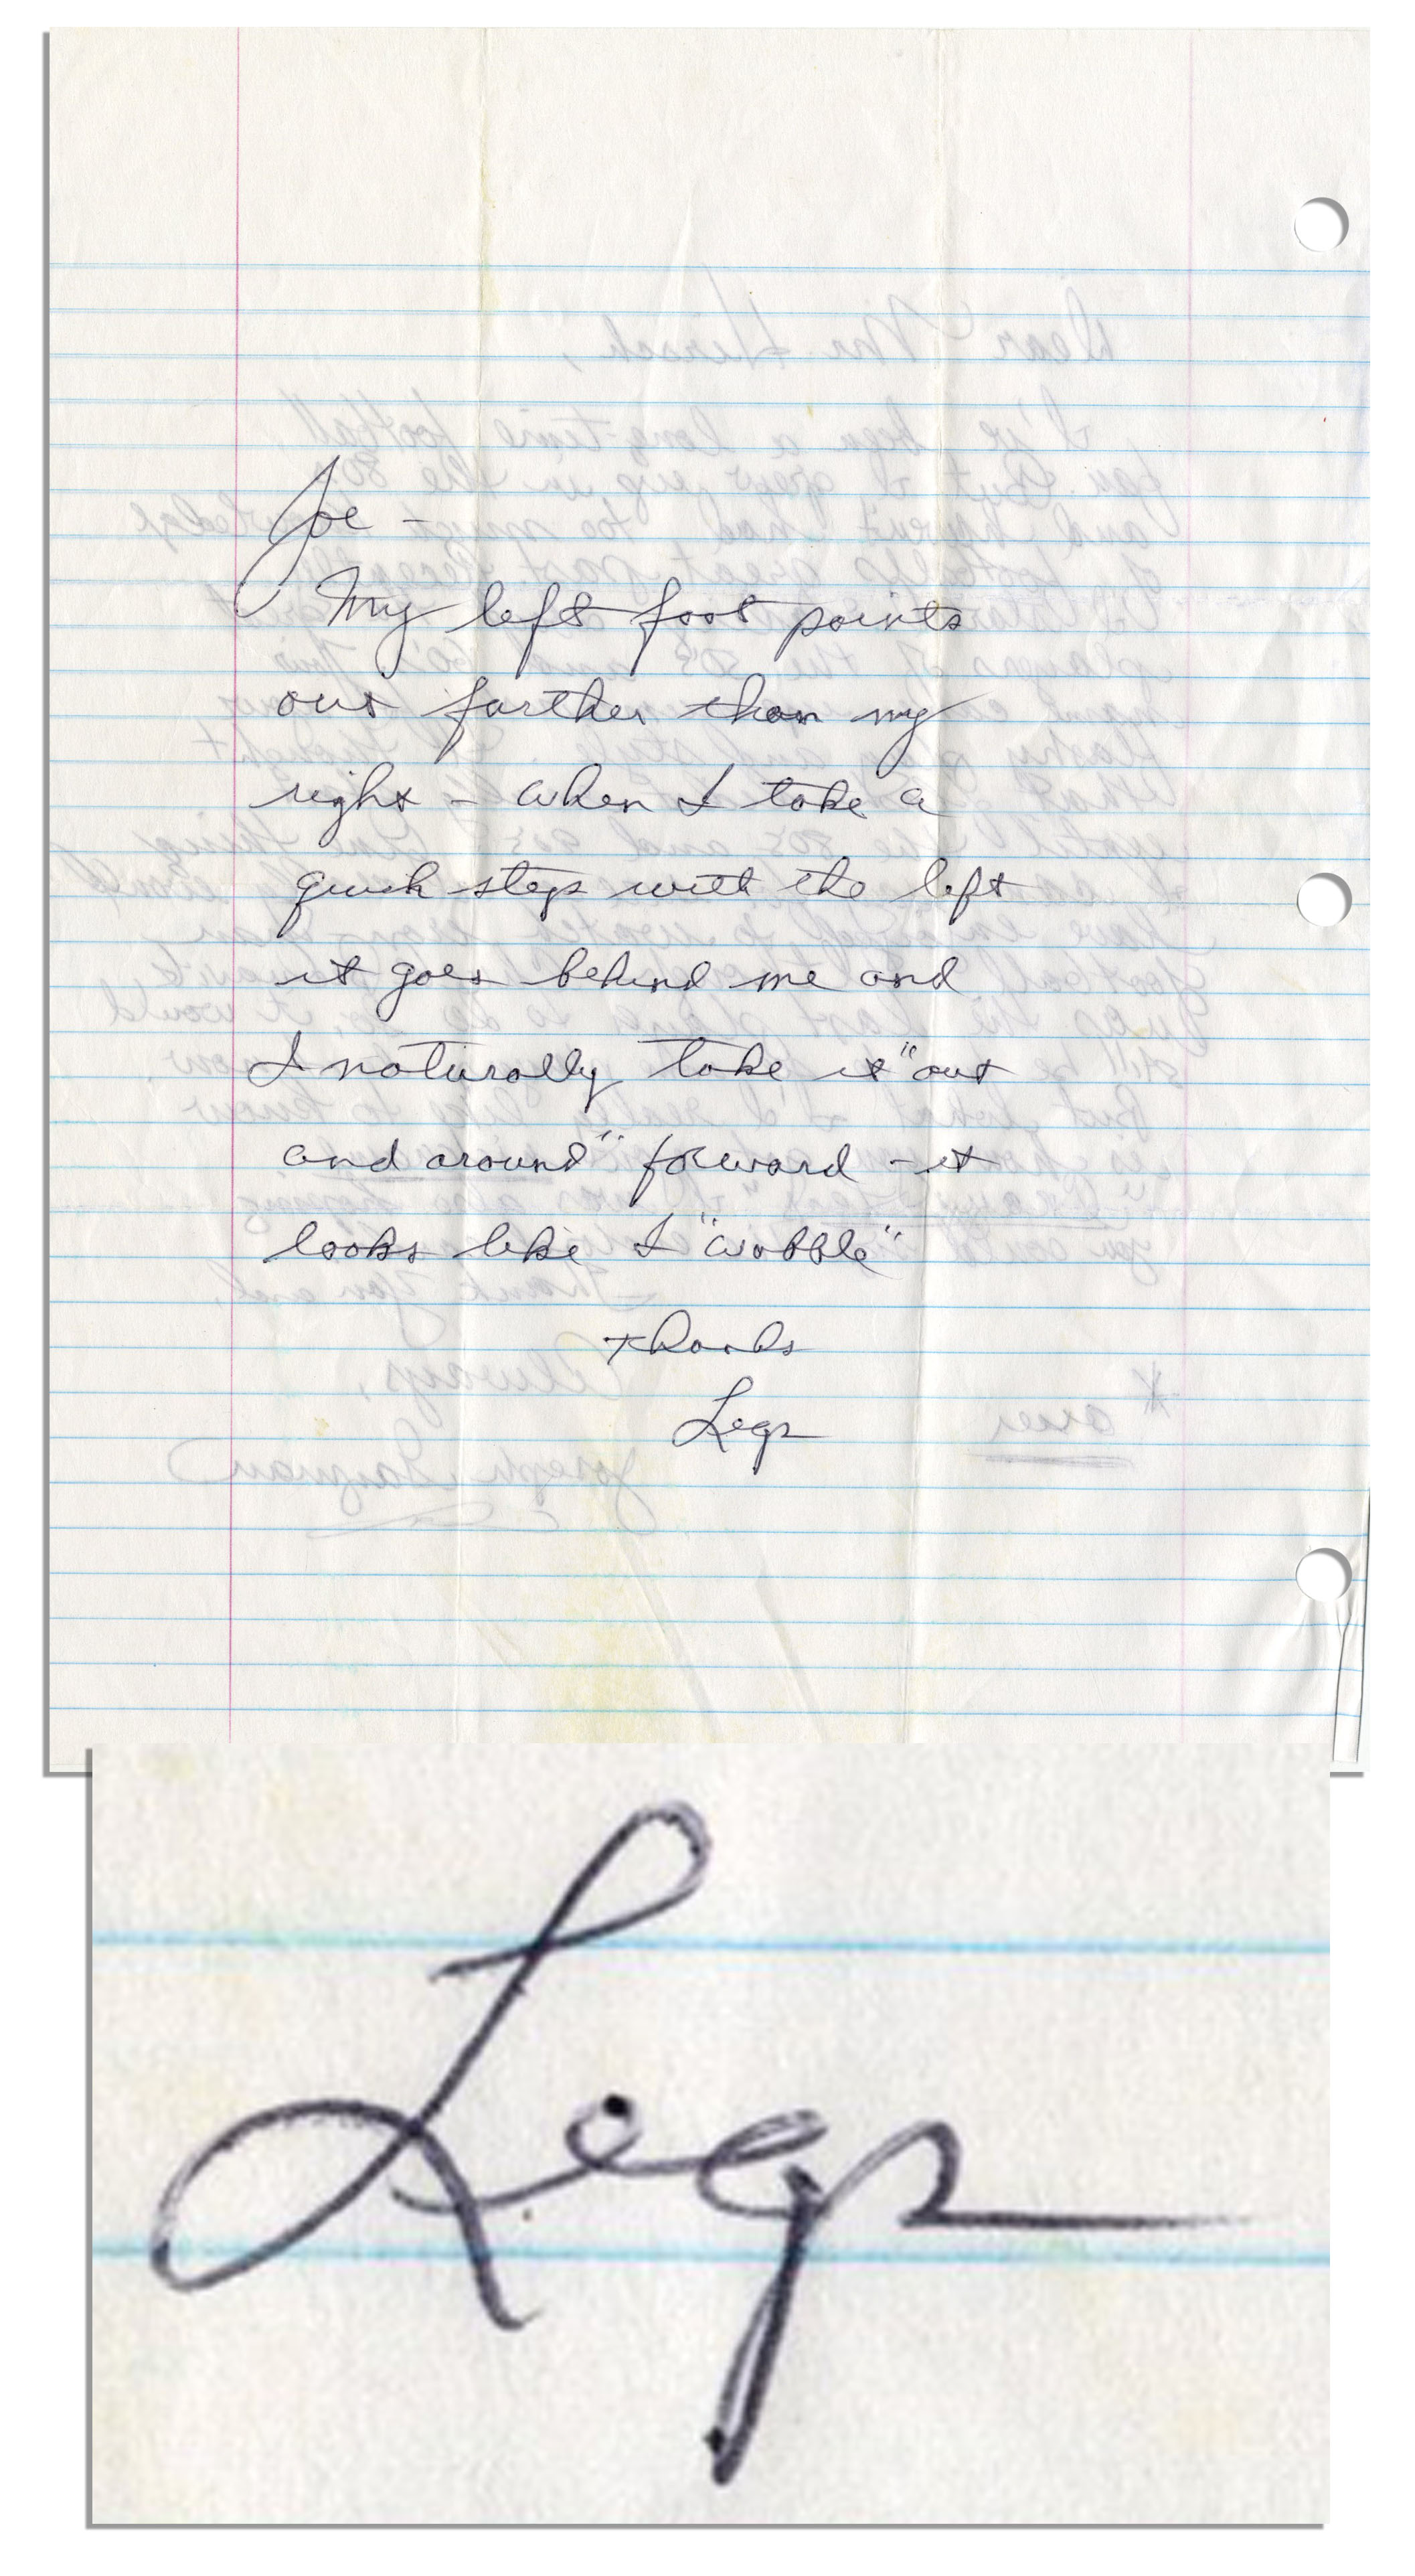 Joe -
My left foot points
out farther than my
right - when I take a
quick step with the left
it goes behind me and
I naturally take it "out
and around" forward - it
looks like I "wobble"
Thanks
Legs
Legs